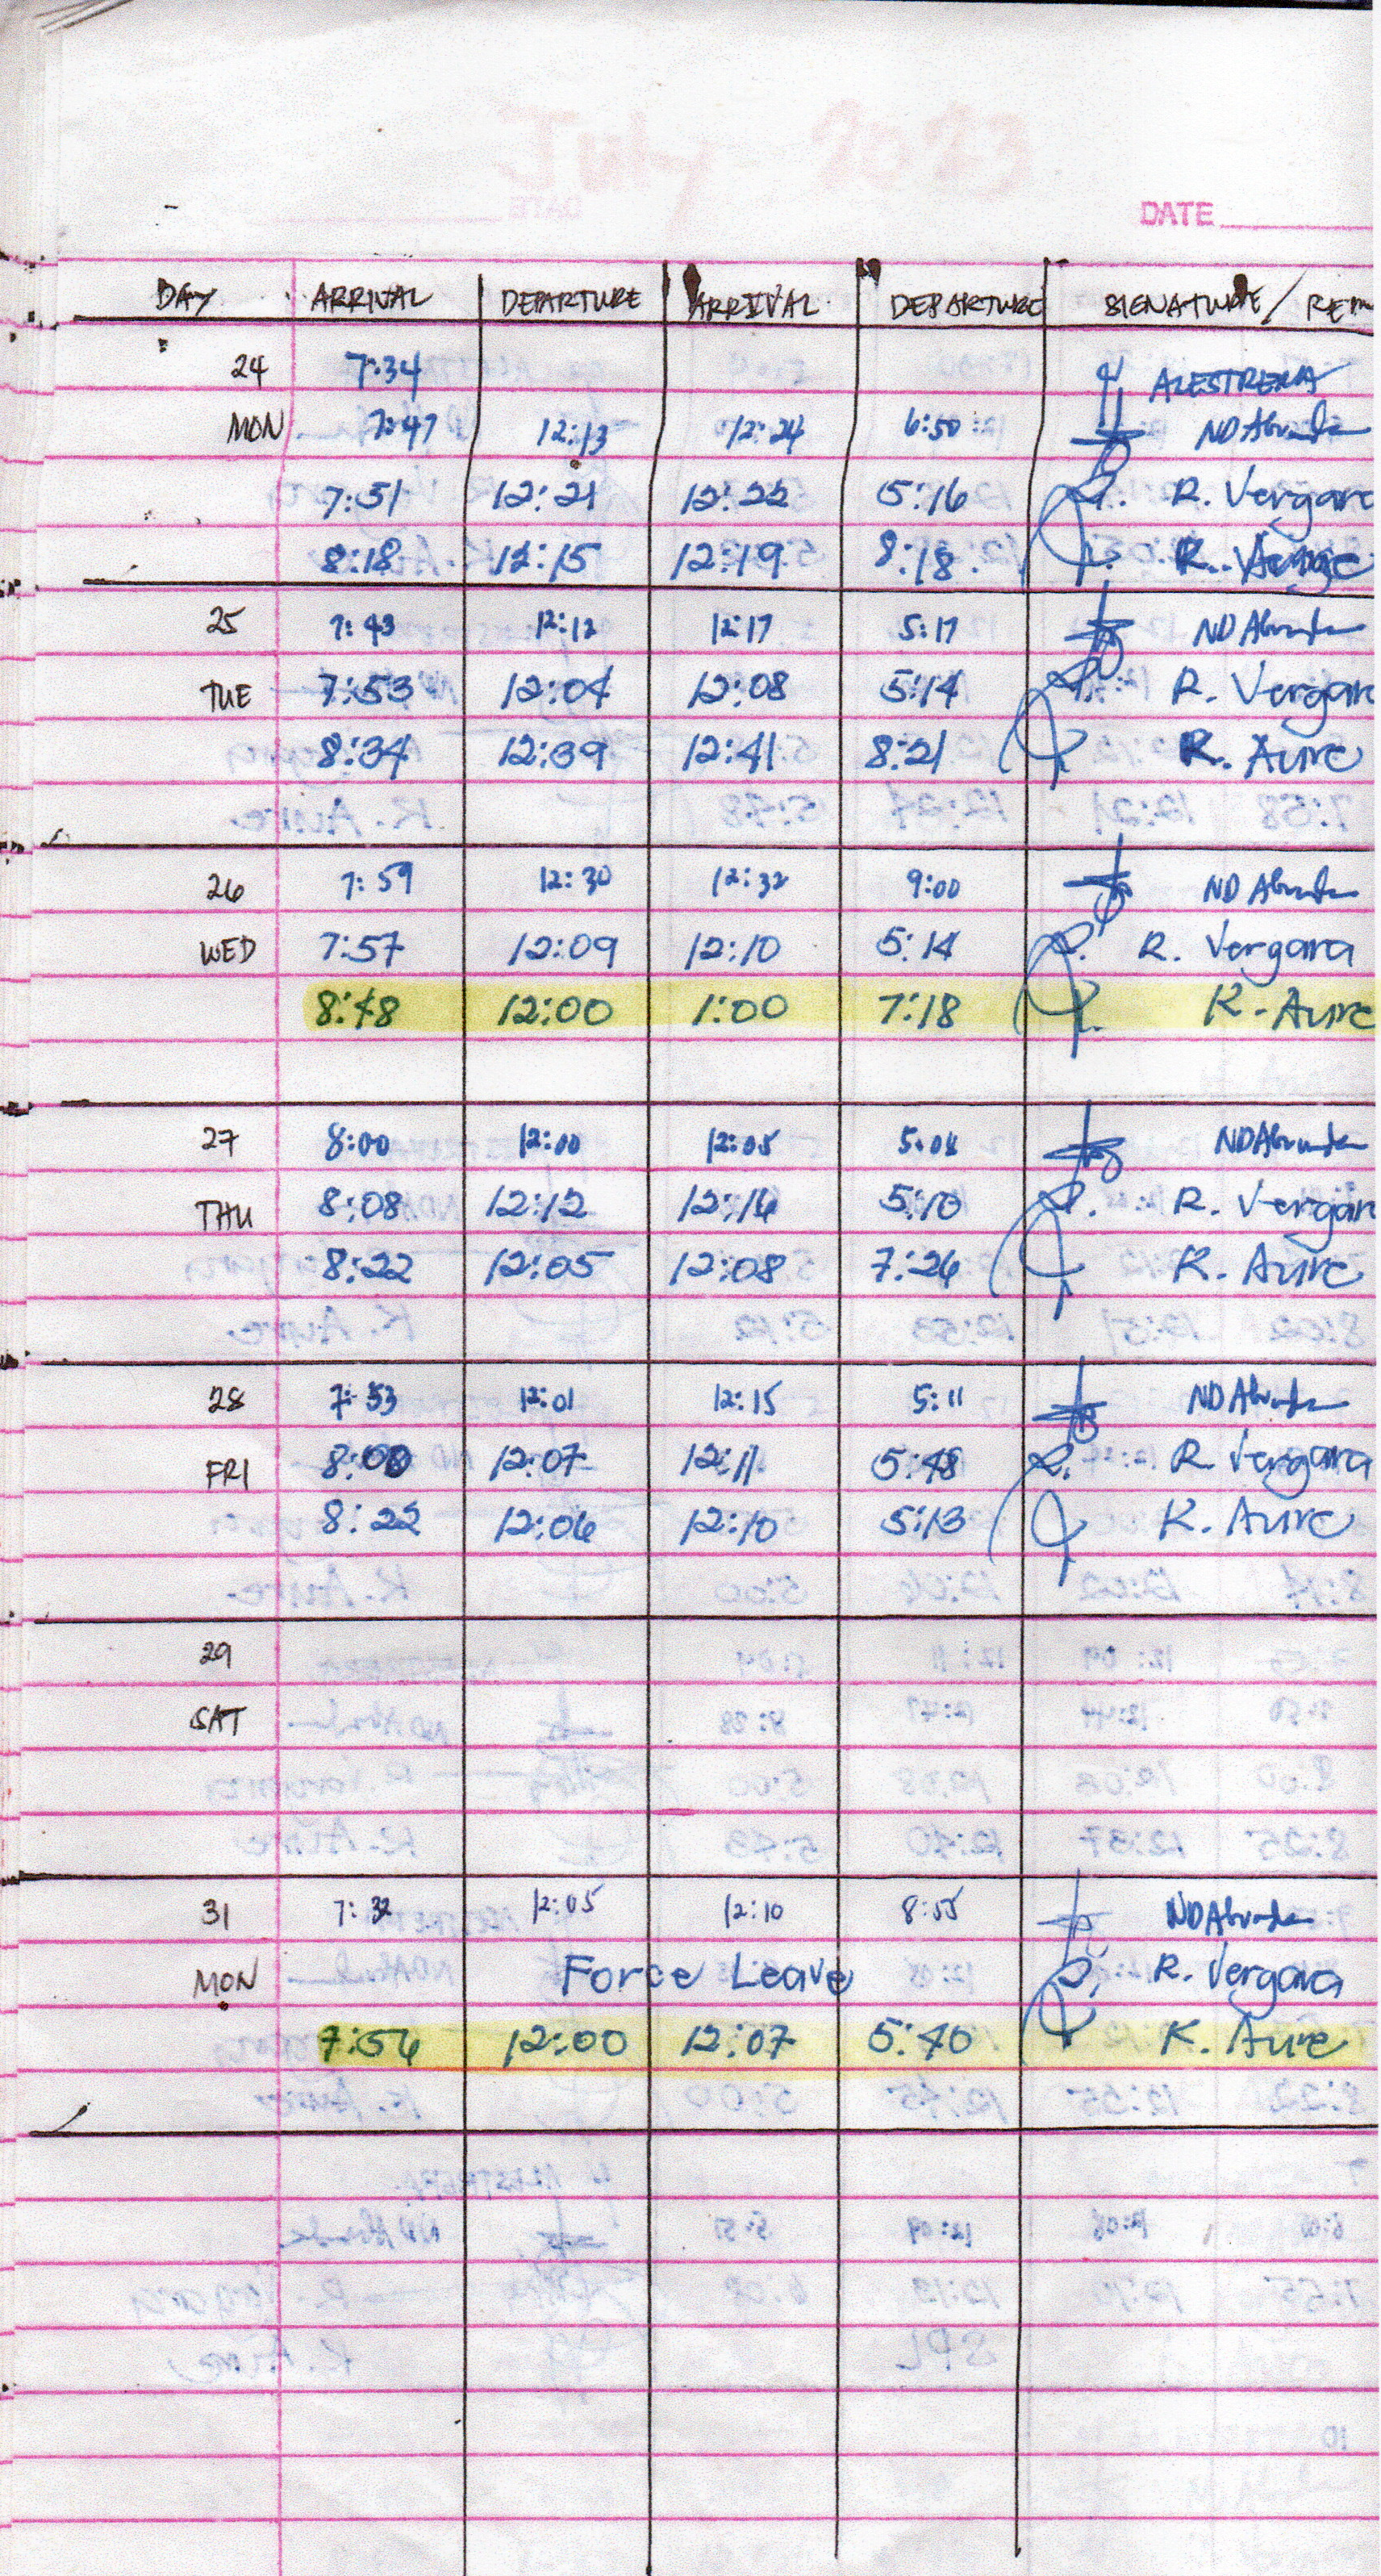 July 2023
DATE
DAY ARRIVAL DEPARTURE ARRIVAL DEPARTURE SIGNATURE / REM
24 7:34 ALESTRERA
MON 7:47 12:13 12:24 6:50 ND
7:51 12:21 12:22 5:16 R. Vergara
8:18 12:15 12:19 8:18
25 7:43 12:12 12:17 5:17 ND
TUE 7:53 12:04 12:08 5:14 R. Vergar
8:34 12:39 12:41 8:21 K. Aure
26 7:59 12:30 12:32 9:00 ND
WED 7:57 12:09 12:10 5:14 R. Vergara
8:48 12:00 1:00 7:18 K. Aure
27 8:00 12:00 12:05 5:08 ND
THU 8:08 12:12 12:16 5:10 R. Vergar
8:22 12:05 12:08 7:26 K. Aure
28 7:53 12:01 12:15 5:11 ND
FRI 8:00 12:07 12:11 5:48 R. Vergara
8:22 12:06 12:10 5:13 K. Aure
29
SAT
31 7:32 12:05 12:10 8:55 ND
MON Force Leave R. Vergara
7:56 12:00 12:07 5:40 K. Aure